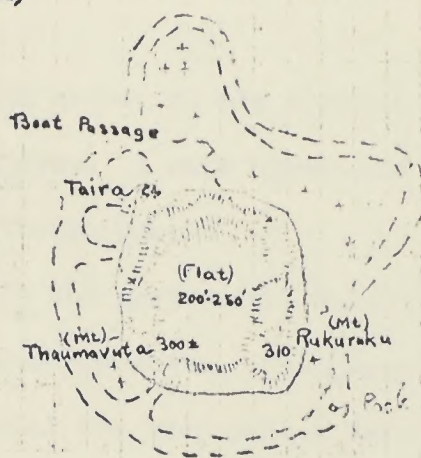 Boat Passage
Taira
(Flat)
200'-250'
(Mt)
Thaumavuta 300±
(Mt)
Rukuruku
310